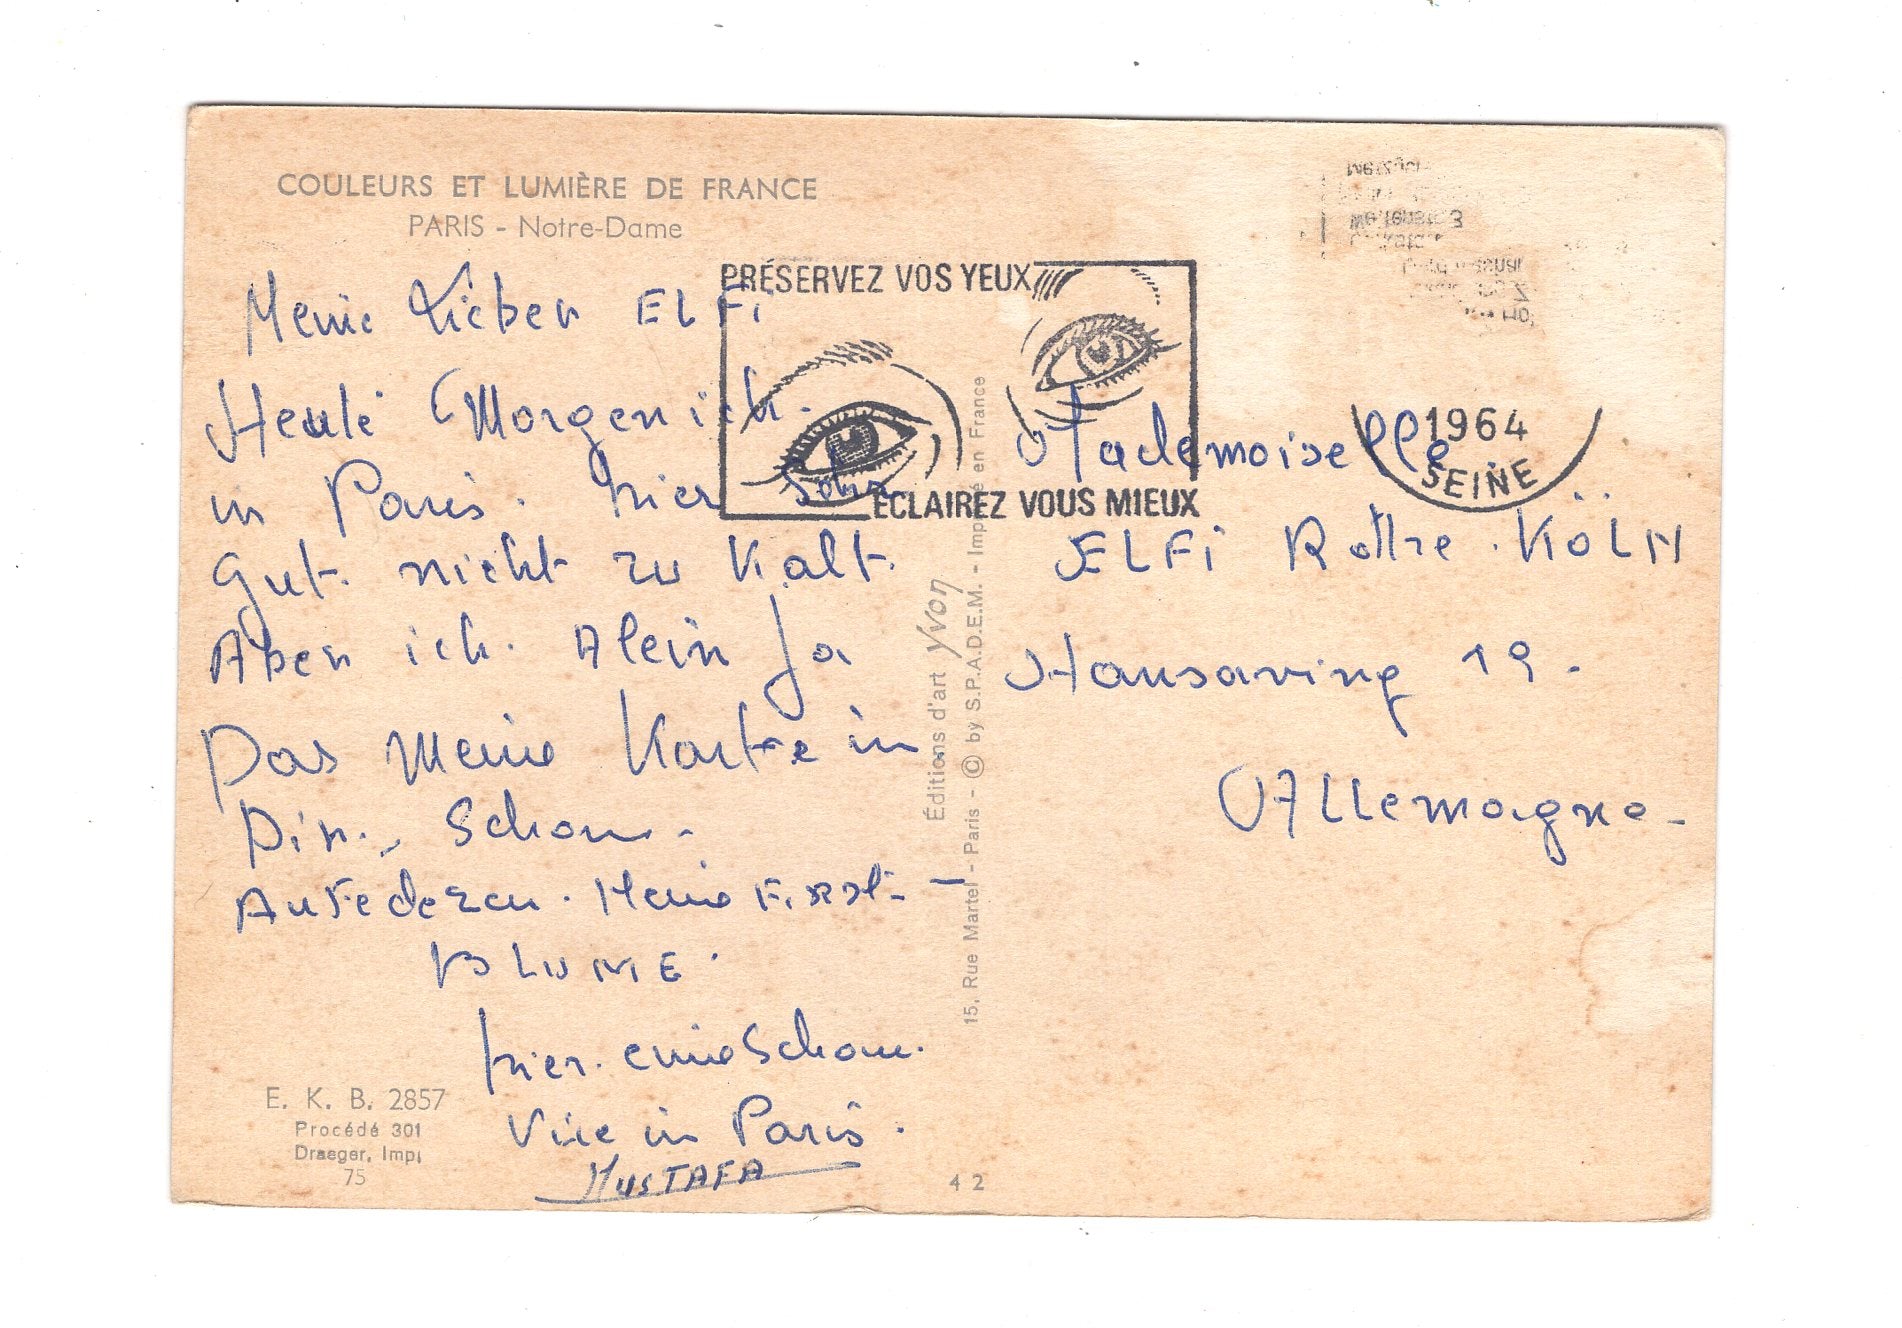 COULEURS ET LUMIÈRE DE FRANCE
PARIS - Notre-Dame
Meine Lieber ELFi
Heute Morgen ich.
in Paris. hier Sehr
Gut. nicht zu Kalt.
Aber ich. Alein Ja
Das Meine Karte in
Din., Schon.
Aufederzen. Meine
BLUME.
hier. eine Schon.
Vile in Paris.
MUSTAFA
E. K. B. 2857
Procédé 301
Draeger, Imp.
75
42
Éditions d'art Yvon
15, Rue Martel - Paris - © by S.P.A.D.E.M. - Imprimé en France
PRÉSERVEZ VOS YEUX
ÉCLAIREZ VOUS MIEUX
1964
SEINE
Mademoiselle.
ELFi Rothe. KÖLN
Hansaring 19.
Allemagne.